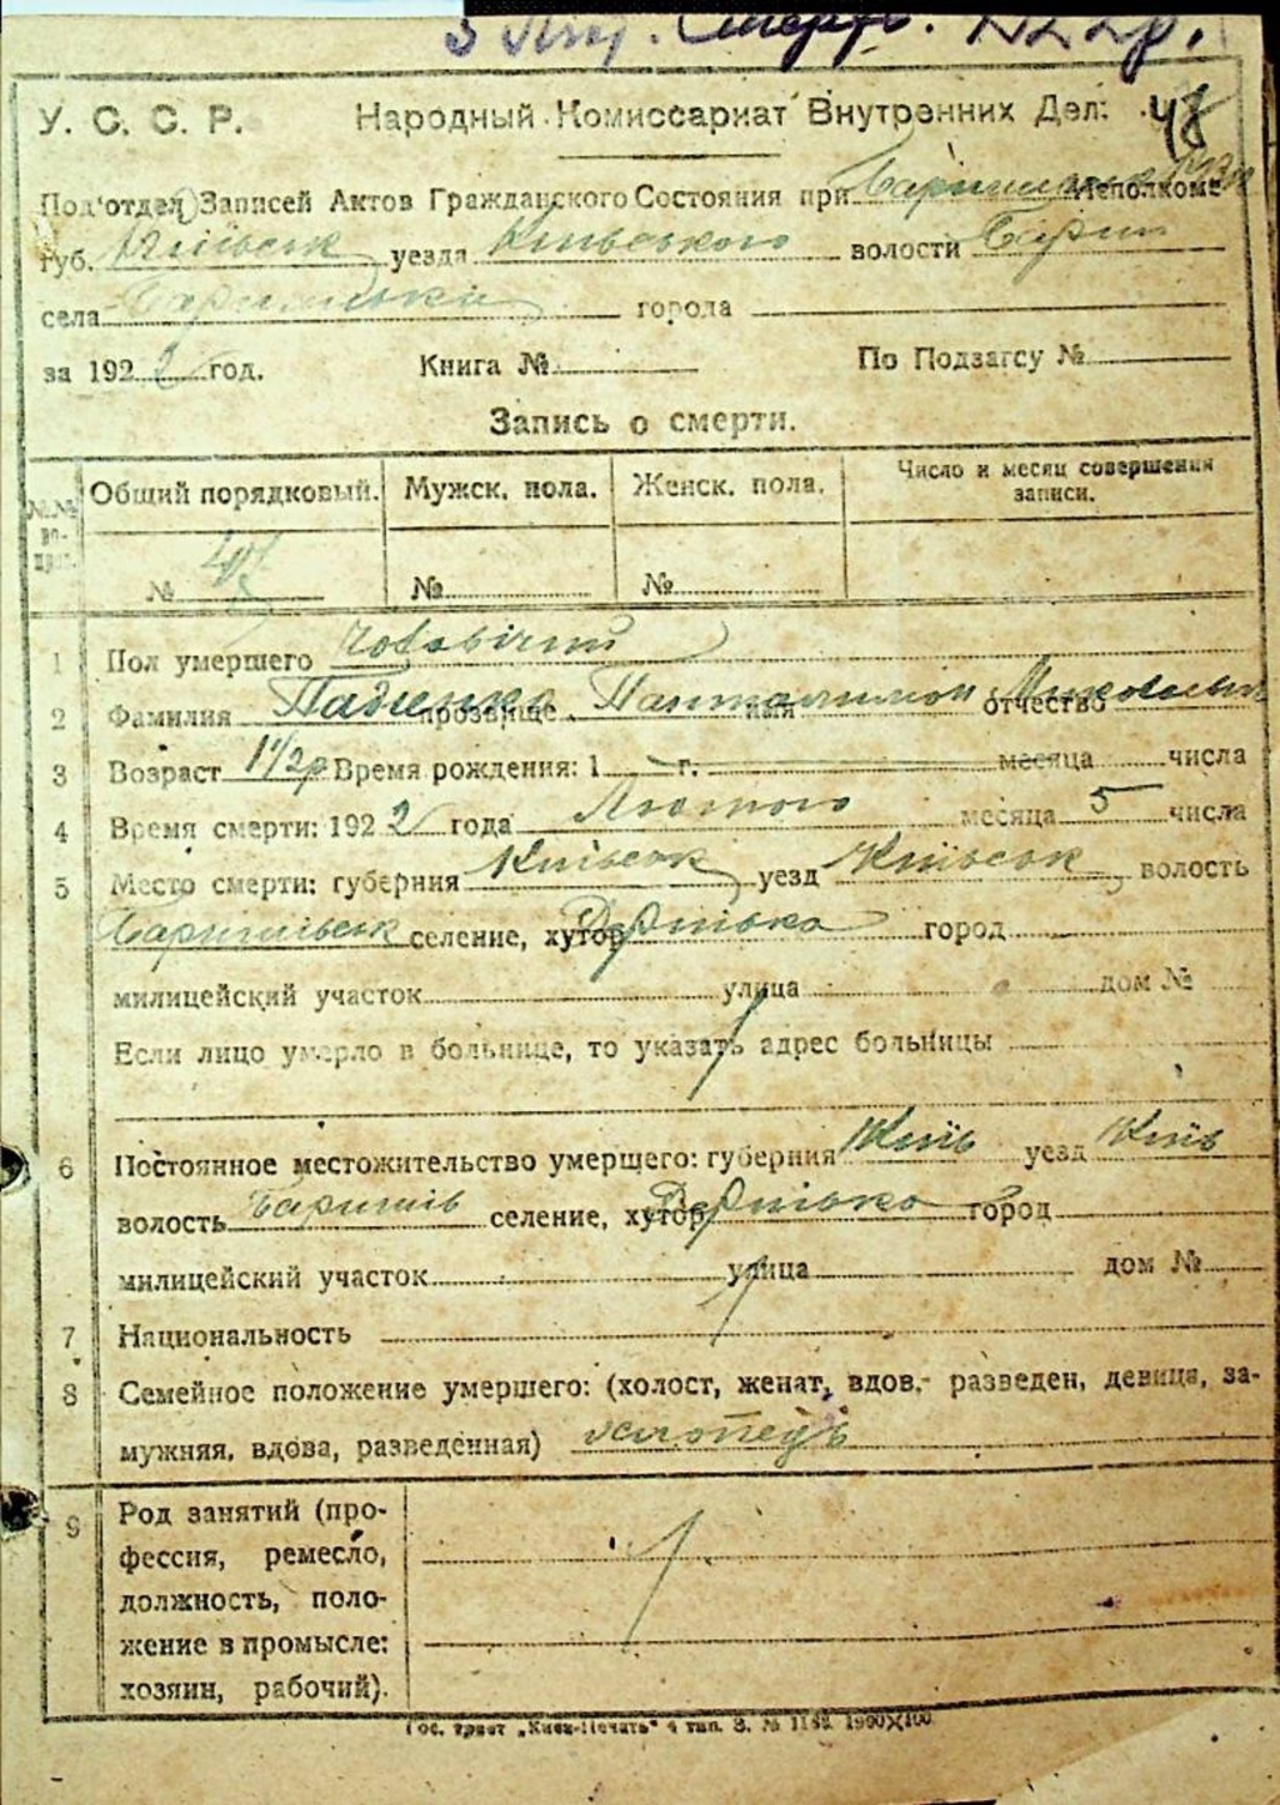 У. С. С. Р. Народный Комиссариат Внутренних Дел. 48
Под'отдел Записей Актов Гражданского Состояния при Исполкоме
губ. Київськ уезда Київського волости Бариш
села города
за 1922 год. Книга № По Подзагсу №
Запись о смерти.
№№ во- прос. Общий порядковый. Мужск. пола. Женск. пола. Число и месяц совершения записи.
№ 48 № №
1 Пол умершего чоловічий
2 Фамилия прозвище Пантилимон имя отчество
3 Возраст 1 1/2 р Время рождения: 1 г. месяца числа
4 Время смерти: 1922 года Лютого месяца 5 числа
5 Место смерти: губерния Київськ уезд Київськ волость
Баришівськ селение, хутор Дернівка город
милицейский участок улица дом №
Если лицо умерло в больнице, то указать адрес больницы
6 Постоянное местожительство умершего: губерния Київ уезд Київ
волость Баришів селение, хутор Дернівка город
милицейский участок улица дом №
7 Национальность
8 Семейное положение умершего: (холост, женат, вдов, разведен, девица, за-
мужняя, вдова, разведенная) хлопець
9 Род занятий (про-
фессия, ремесло,
должность, поло-
жение в промысле:
хозяин, рабочий).
Гос. трест „Киев-Печать" 4 тип. З. №